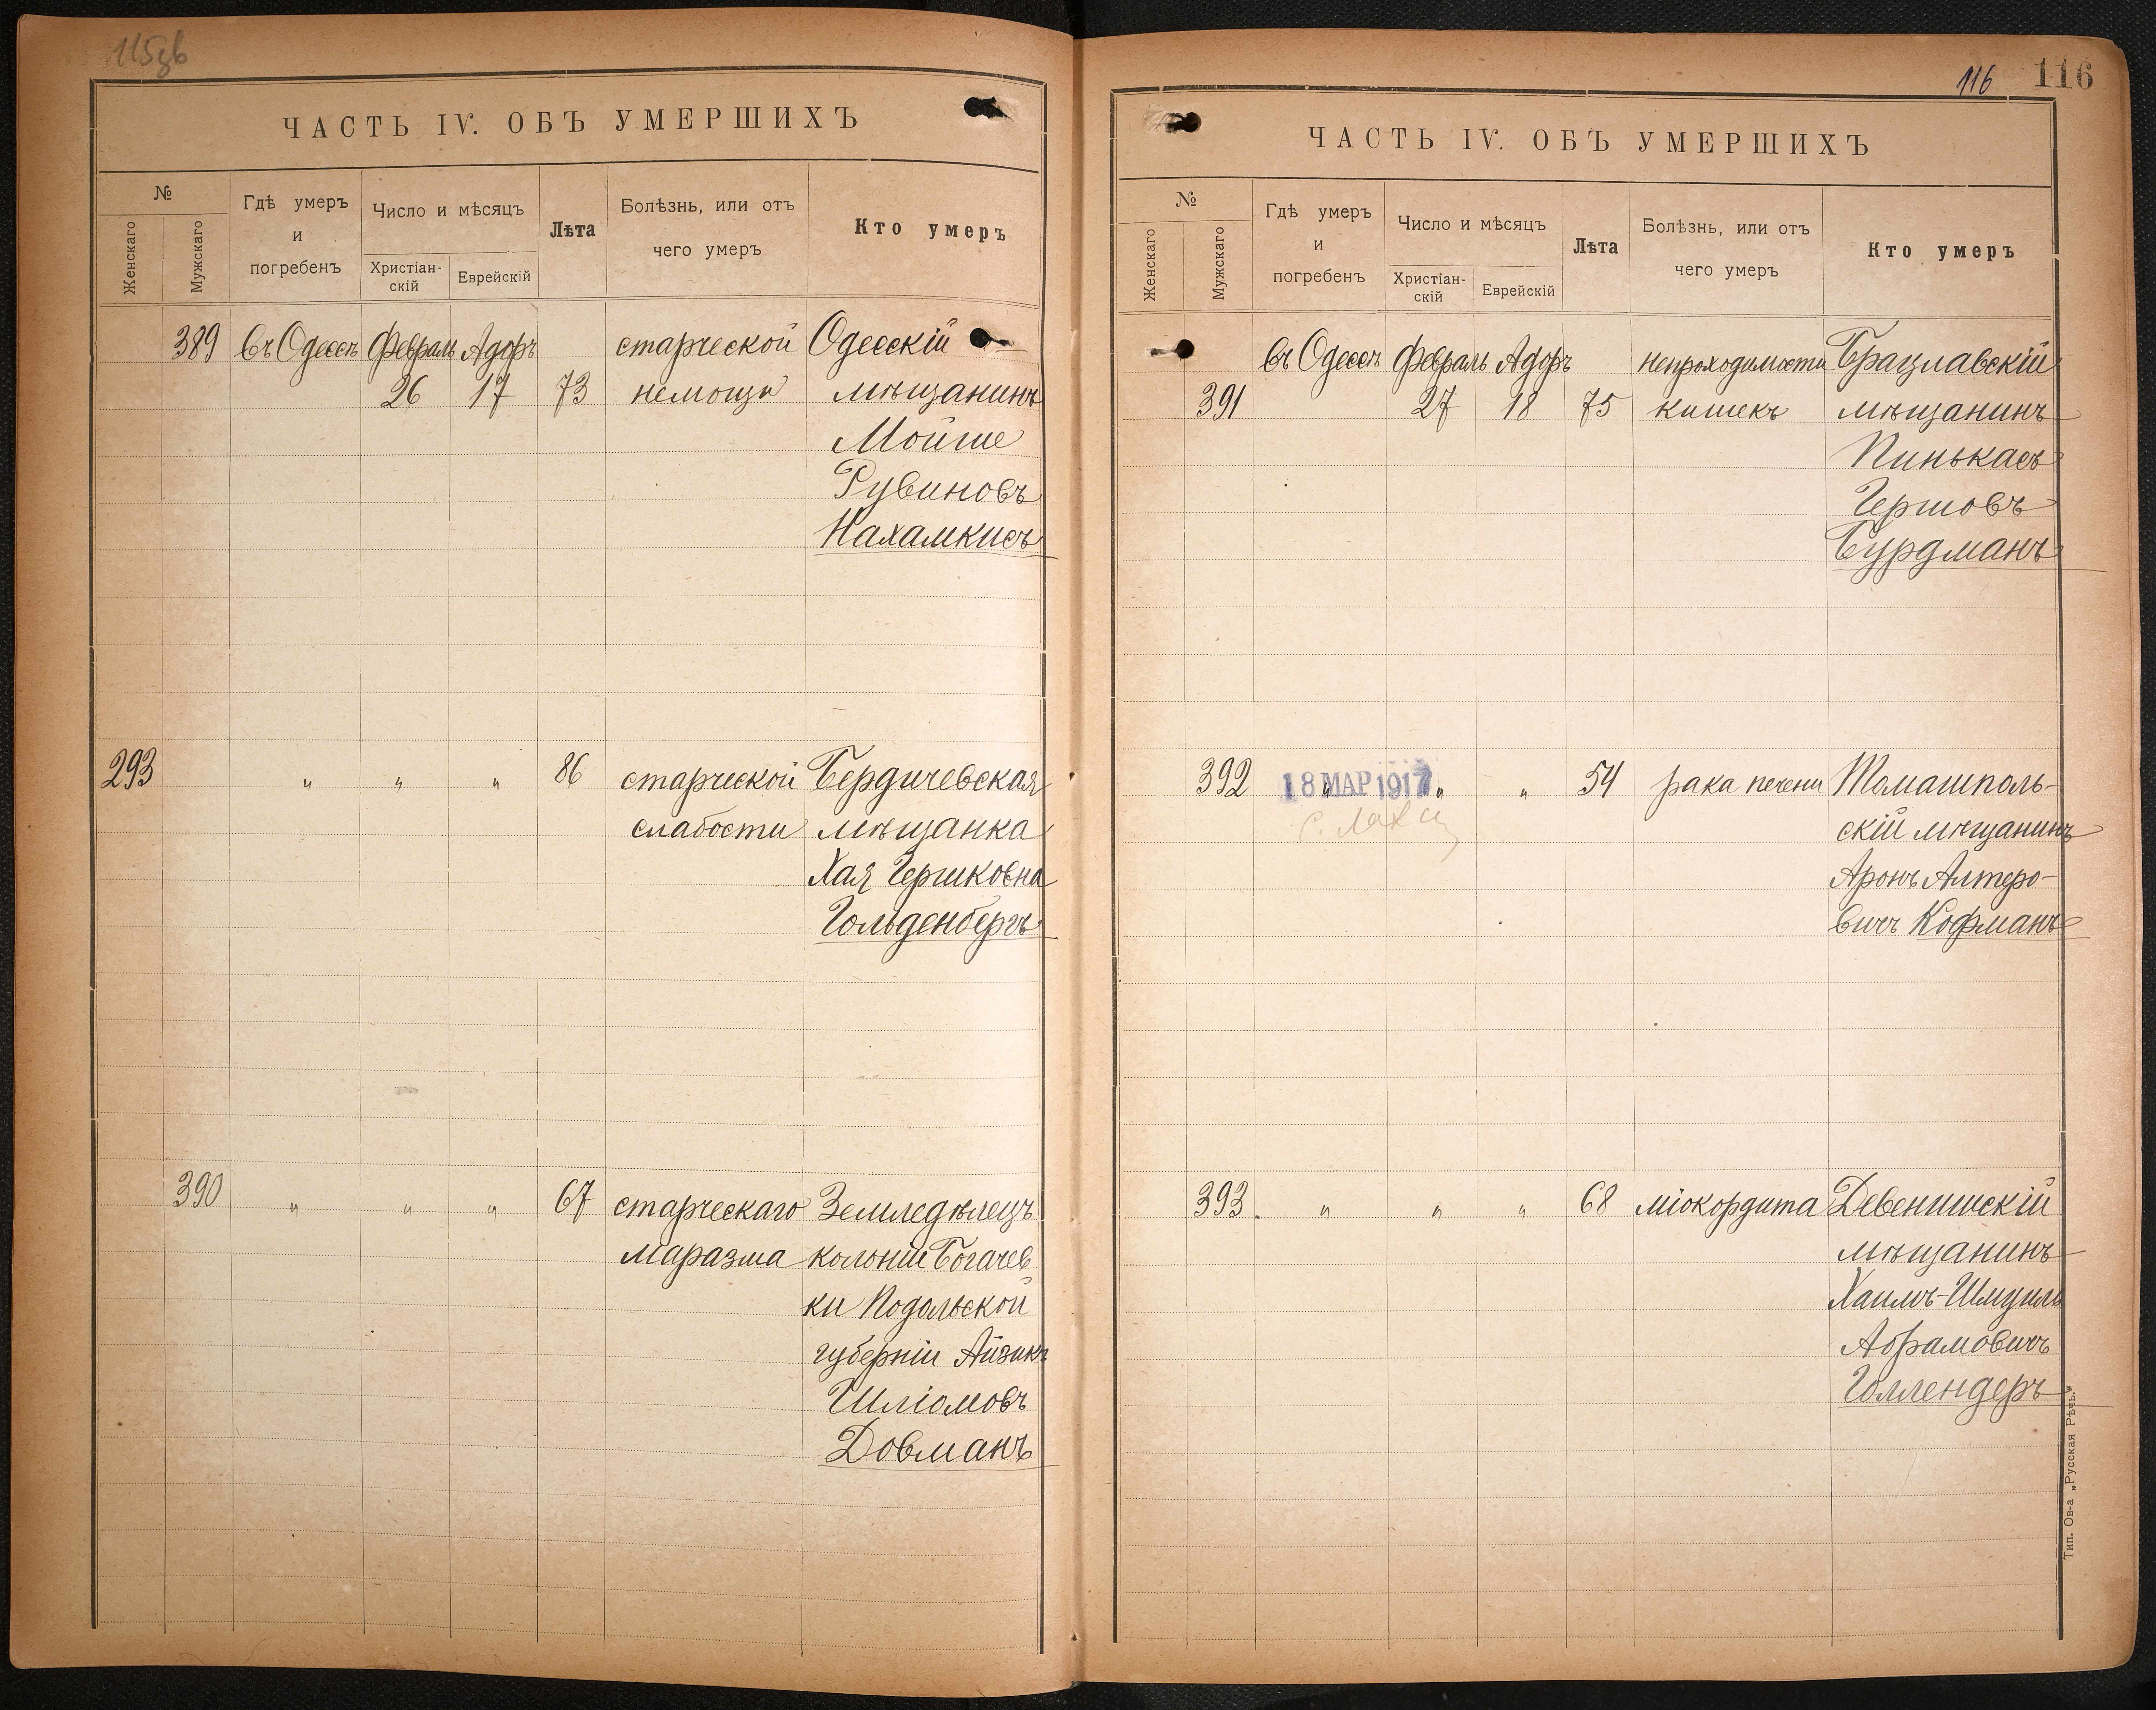 115зв
ЧАСТЬ IV. ОБЪ УМЕРШИХЪ
№
Женскаго
Мужскаго
Гдѣ умеръ
и
погребенъ
Число и мѣсяцъ
Христіан-
скій
Еврейскій
Лѣта
Болѣзнь, или отъ
чего умеръ
Кто умеръ
389 въ Одессѣ Февраль Адоръ старческой Одесскій
26 17 73 немощи мѣщанинъ
Мойше
Рувиновъ
Нахамкисъ
293 " " " 86 старческой Бердичевская
слабости мѣщанка
Хая Гершковна
Гольденбергъ
390 " " " 67 старческаго Земледѣлецъ
маразма колоніи Богачев
ки Подольской
губерніи Айзикъ
Шліомовъ
Довманъ
116 116
ЧАСТЬ IV. ОБЪ УМЕРШИХЪ
№
Женскаго
Мужскаго
Гдѣ умеръ
и
погребенъ
Число и мѣсяцъ
Христіан-
скій
Еврейскій
Лѣта
Болѣзнь, или отъ
чего умеръ
Кто умеръ
въ Одессѣ Февраль Адоръ непроходимости Брацлавскій
391 27 18 75 кишекъ мѣщанинъ
Пинькасъ
Гершовъ
Бурдманъ
392 " " " 54 рака печени Томашполь-
18 МАР 1917
скій мѣщанинъ
Аронъ Алтеро-
вичъ Кофманъ
393. " " " 68 міокордита Девенишскій
мѣщанинъ
Хаимъ-Шмуиль
Абрамовичъ
Голлендеръ
Тип. Ов-а „Русская Рѣчь."